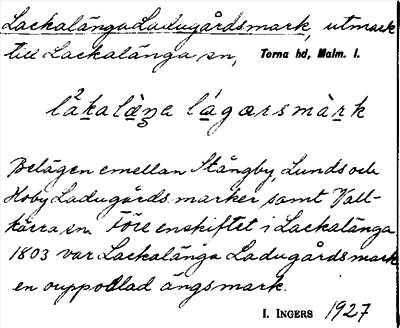 Lackalänga Ladugårdsmark, utmark
till Lackalänga sn, Torna hd, Malm. l.
Belägen emellan Stångby, Lunds och
Hoby Ladugårds marker samt Vall-
kärra sn. Före enskiftet i Lackalänga
1803 var Lackalänga Ladugårdsmark
en ouppodlad ängsmark.
I. INGERS 1927